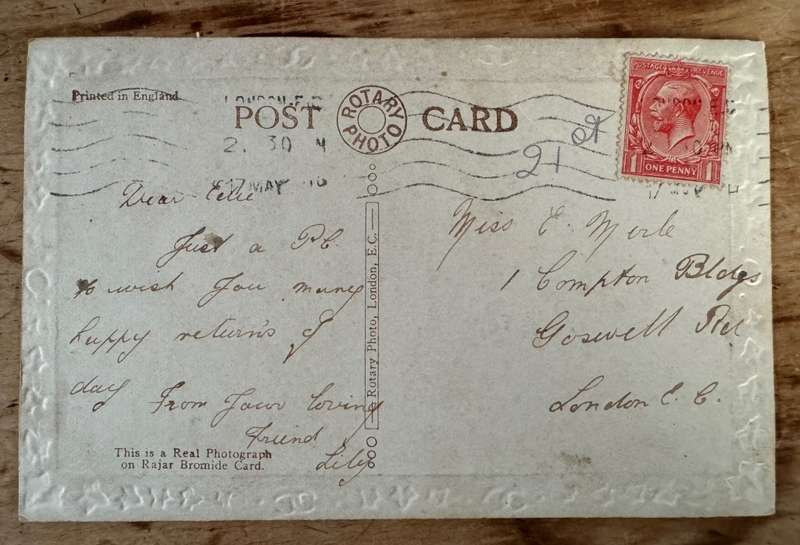 Printed in England
LONDON. E.C.
POST CARD
ROTARY PHOTO
2. 30 M
17 MAY
21
POSTAGE REVENUE
1 ONE PENNY 1
Dear
Just a P.C.
to wish You many
happy return's of
day
From Your loving
Friend
Lily
Miss E. Merle
1 Compton Bldgs
Goswell Rd
London E. C.
Rotary Photo, London, E.C.
This is a Real Photograph
on Rajar Bromide Card.